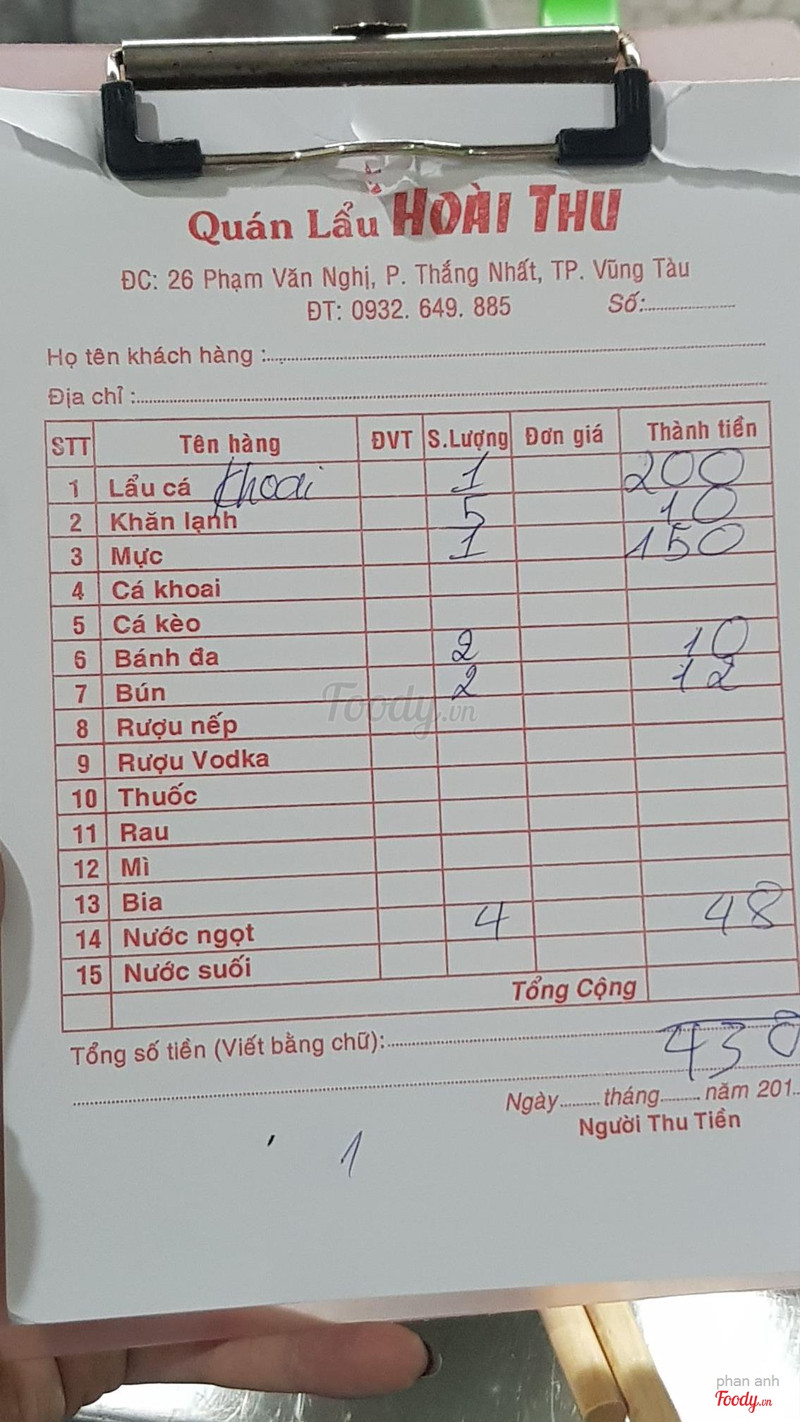 Quán Lẩu HOÀI THU
ĐC: 26 Phạm Văn Nghị, P. Thắng Nhất, TP. Vũng Tàu
ĐT: 0932. 649. 885 Số:
Họ tên khách hàng :
Địa chỉ :
STT Tên hàng ĐVT S.Lượng Đơn giá Thành tiền
1 Lẩu cá khoai 1 200
2 Khăn lạnh 5 10
3 Mực 1 150
4 Cá khoai
5 Cá kèo
6 Bánh đa 2 10
7 Bún 2 12
8 Rượu nếp
9 Rượu Vodka
10 Thuốc
11 Rau
12 Mì
13 Bia
14 Nước ngọt 4 48
15 Nước suối
Tổng Cộng
Tổng số tiền (Viết bằng chữ): 430
Ngày tháng năm 201
Người Thu Tiền
1
Foody.vn
phan anh
Foody.vn